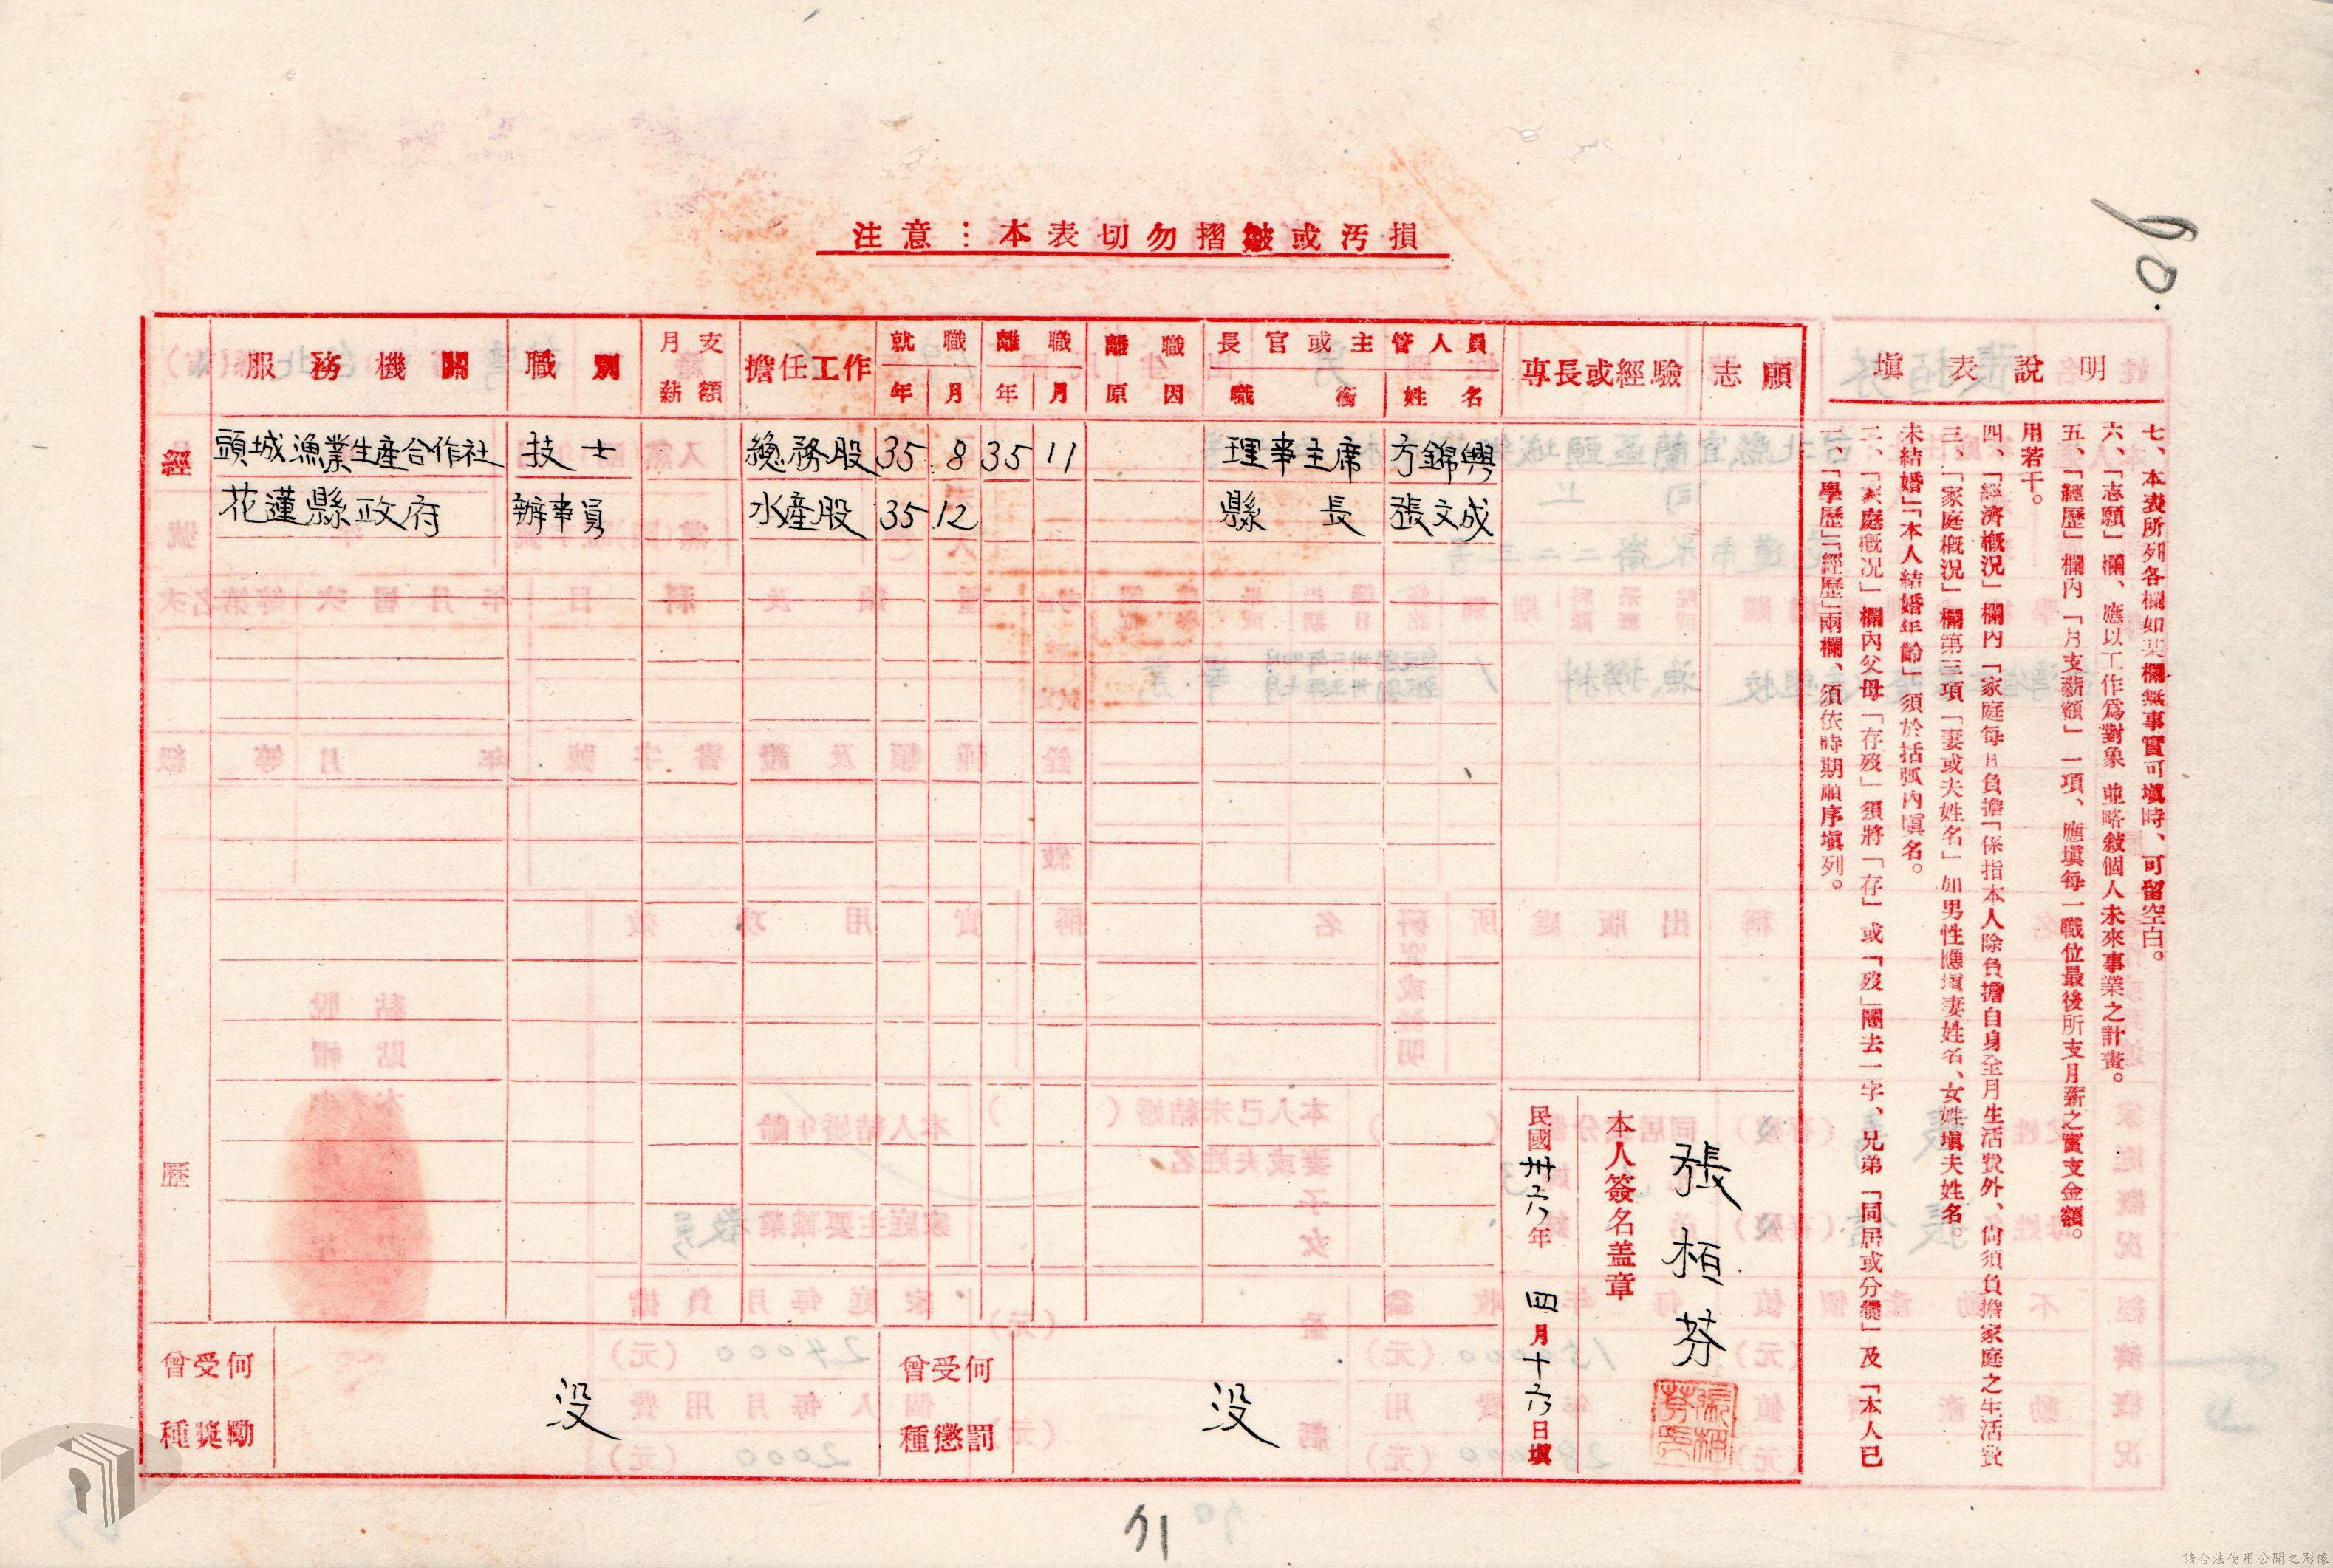 注意：本表切勿摺皺或汚損
90.
經歷
服務機關 職別 月支薪額 擔任工作 就職 年 月 離職 年 月 離職原因 長官或主管人員 職銜 姓名 專長或經驗 志願
頭城漁業生產合作社 技士 總務股 35 8 35 11 理事主席 方錦興
花蓮縣政府 辦事員 水產股 35 12 縣長 張文成
曾受何種獎勵 没
曾受何種懲罰 没
張栢芬
本人簽名盖章
民國卅六年四月十六日塡
塡表說明
一、「學歷」「經歷」兩欄、須依時期順序塡列。
二、「家庭槪况」欄內父母「存歿」須將「存」或「歿」圈去一字、兄弟「同居或分爨」及「本人已
未結婚」「本人結婚年齡」須於括弧內塡名。
三、「家庭槪況」欄第三項「妻或夫姓名」如男性應塡妻姓名、女姓塡夫姓名。
四、「經濟槪況」欄內「家庭每月負擔「係指本人除負擔自身全月生活費外、尙須負擔家庭之生活費
用若干。
五、「經歷」欄內「月支薪額」一項、應塡每一職位最後所支月薪之實支金額。
六、「志願」欄、應以工作爲對象 並略敍個人未來事業之計畫。
七、本表所列各欄如某欄無事實可塡時、可留空白。
91
請合法使用公開之影像